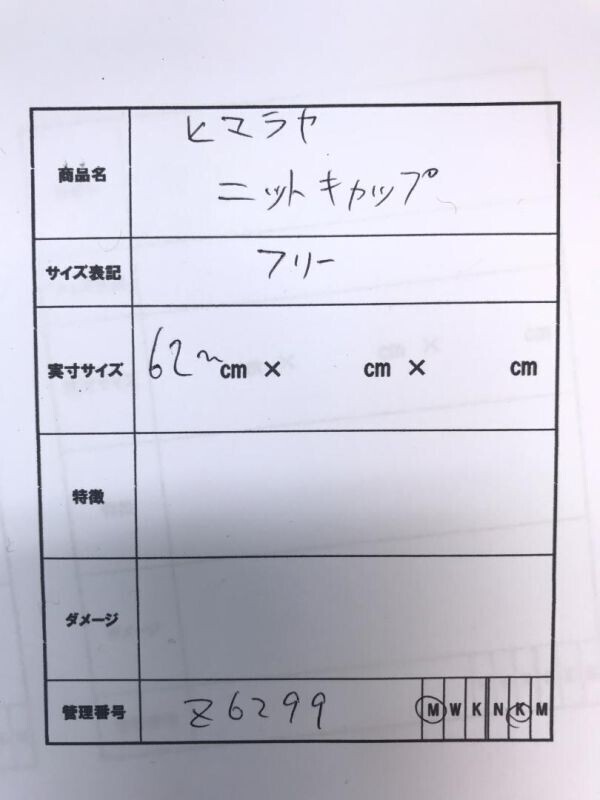 商品名 ヒマラヤ
ニットキャップ
サイズ表記 フリー
実寸サイズ 62〜cm × cm × cm
特徴
ダメージ
管理番号 Z6299 M W K N K M